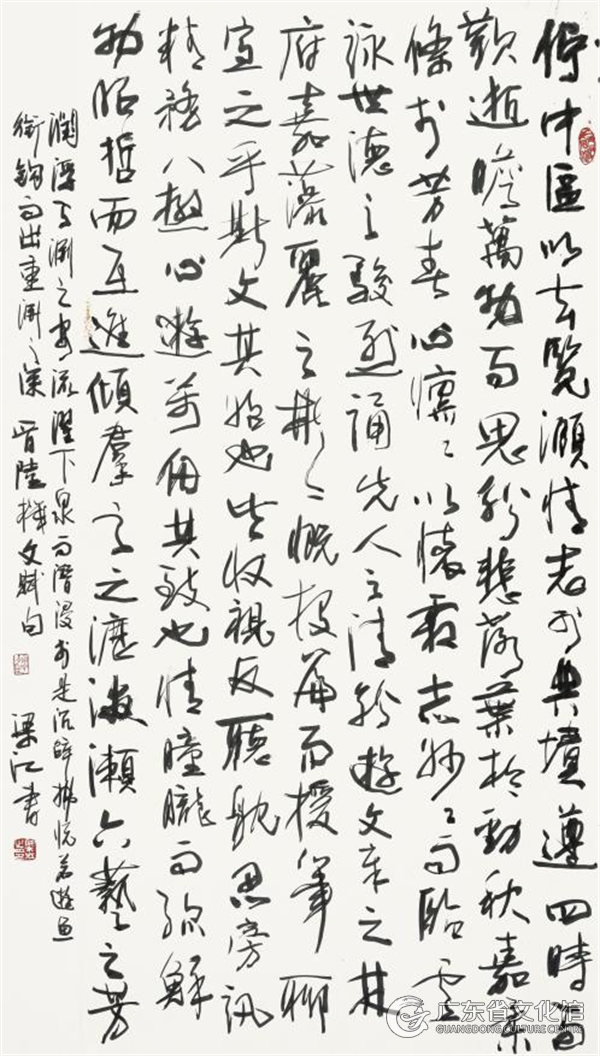 佇中區以玄覽頤情志於典墳遵四時而
歎逝瞻萬物而思紛悲落葉於勁秋嘉柔
條於芳春心懍々以懷霜志眇々而臨雲
詠世德之駿烈誦先人之清芬遊文章之林
府嘉藻麗之彬々慨投篇而援筆聊
宣之乎斯文其始也皆收視反聽耽思旁訊
精騖八極心遊萬仞其致也情曈曨而彌鮮
物昭晢而互進傾羣言之瀝液漱六藝之芳
潤浮天淵之安流濯下泉而潛浸於是沉辭怫悅若遊魚
銜鉤而出重淵之深 晉陸機文賦句 梁江書
广东省文化馆
GUANGDONG CULTURE CENTER